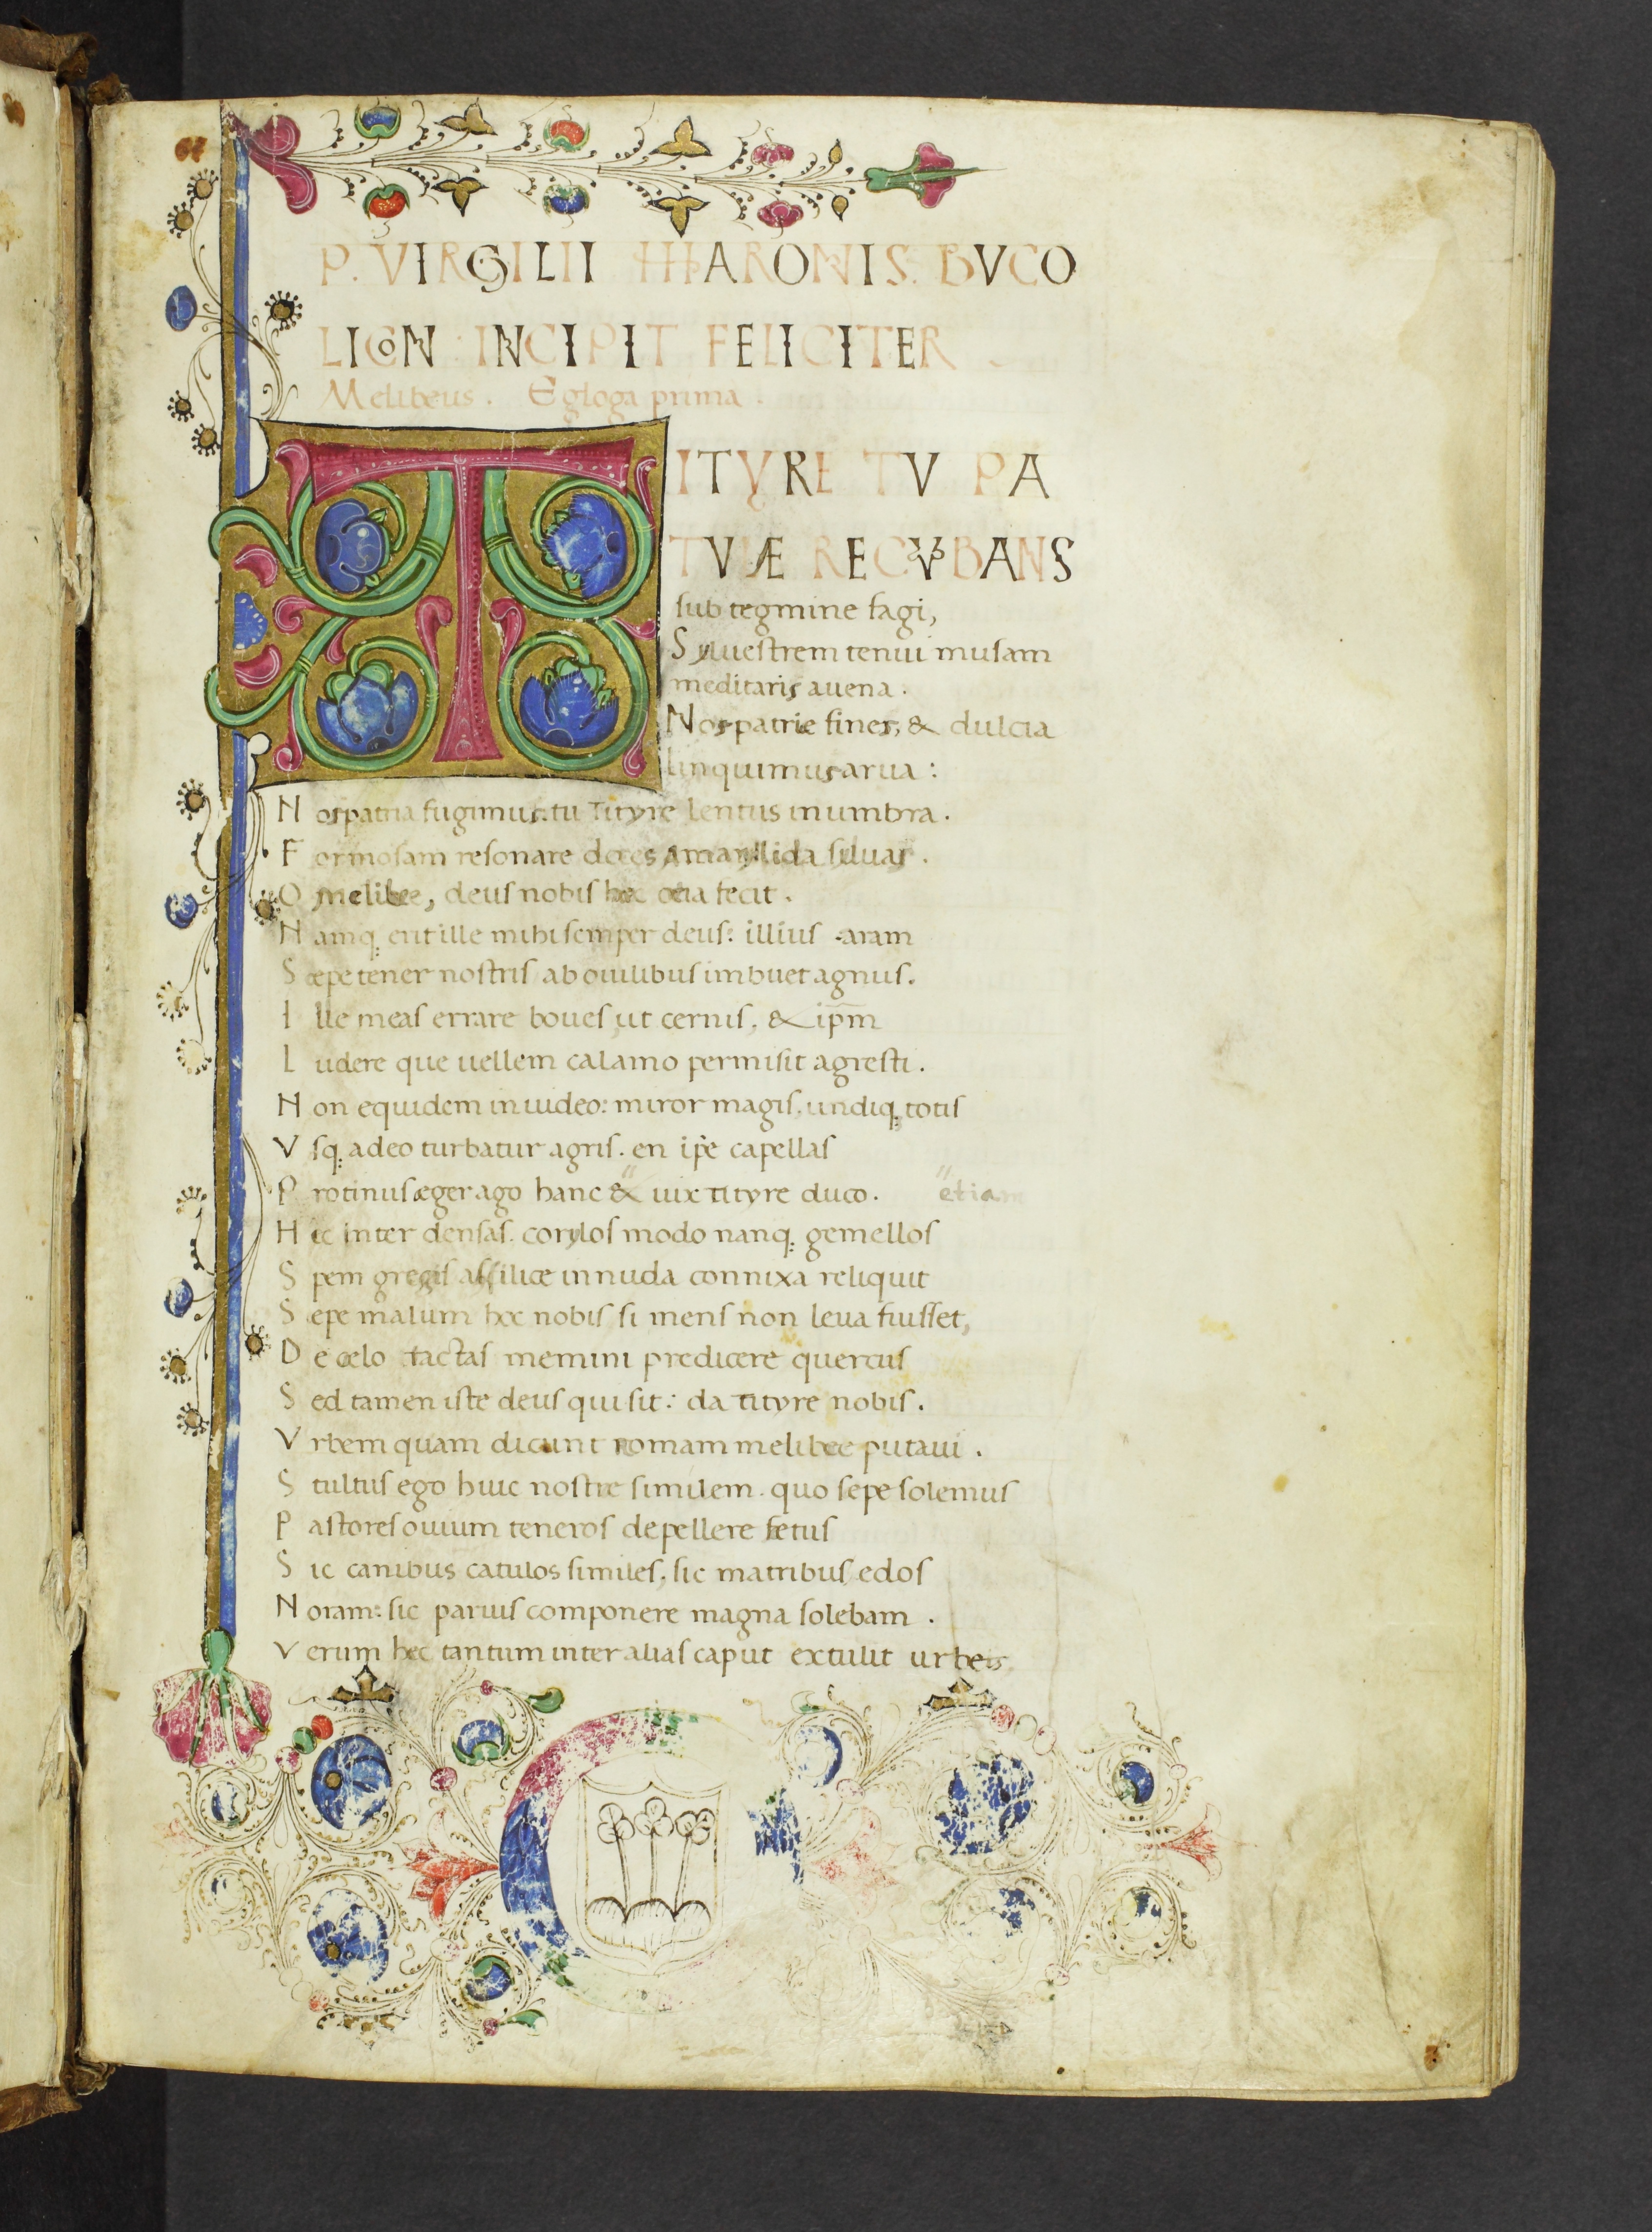 P. VIRGILII MARONIS. BVCO
LICON INCIPIT FELICITER
Melibeus. Egloga prima.
TITYRE TV PA
TVLÆ RECVBANS
sub tegmine fagi,
Syluestrem tenui musam
meditaris auena.
Nos patrie fines, & dulcia
linquimus arua:
Nos patria fugimus: tu Tityre lentus in umbra.
Formosam resonare doces Amaryllida siluas.
O melibee, deus nobis hec ocia fecit.
Namq; erit ille mihi semper deus: illius aram
Sæpe tener nostris ab ouilibus imbuet agnus.
Ille meas errare boues, ut cernis, & ip̄m
Ludere que uellem calamo permisit agresti.
Non equidem inuideo: miror magis, undiq; totis
Vsq; adeo turbatur agris. en ip̄e capellas
Protinus æger ago hanc & uix tityre duco. etiam
Hic inter densas. corylos modo nanq; gemellos
Spem gregis ah silice in nuda connixa reliquit
Sepe malum hoc nobis si mens non leua fuisset,
De celo tactas memini predicere quercus
Sed tamen iste deus qui sit: da tityre nobis.
Vrbem quam dicunt romam melibee putaui.
Stultus ego huic nostre similem. quo sepe solemus
Pastores ouium teneros depellere fetus
Sic canibus catulos similes, sic matribus edos
Noram: sic paruis componere magna solebam.
Verum hec tantum inter alias caput extulit urbeis